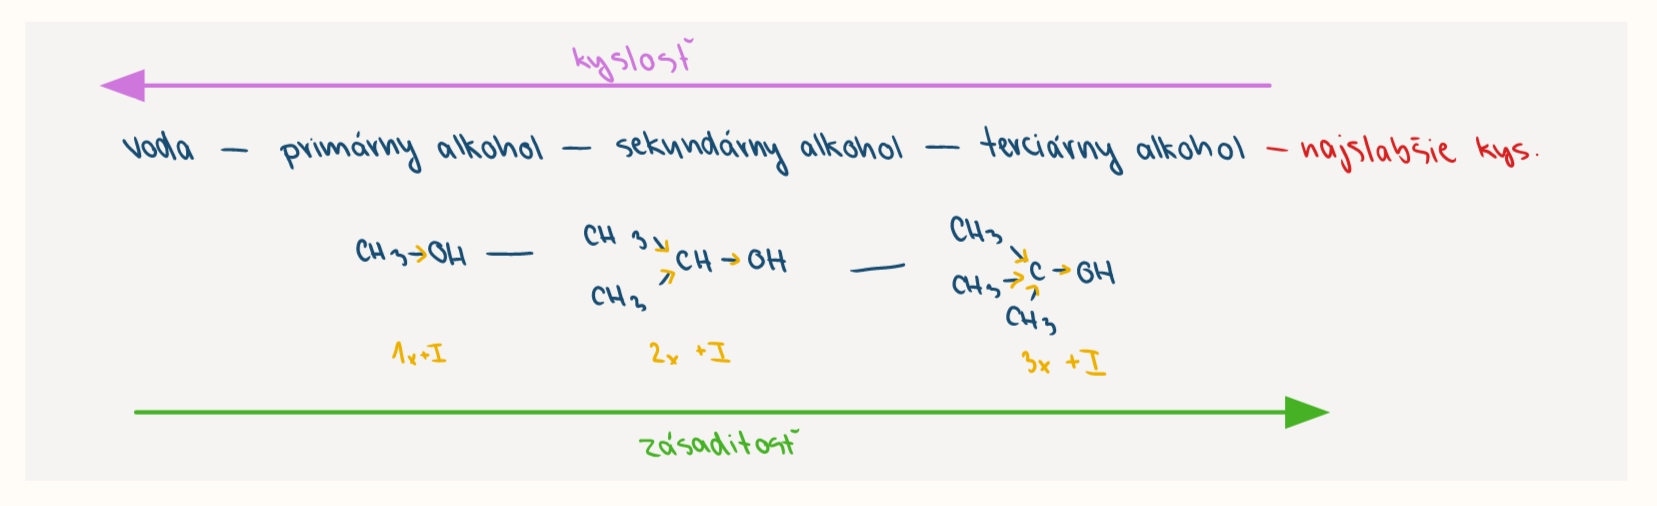 kyslosť
voda — primárny alkohol — sekundárny alkohol — terciárny alkohol — najslabšie kys.
CH3→OH — CH3 CH3 CH→OH — CH3 CH3 CH3 C→OH
1x+I 2x +I 3x +I
zásaditosť